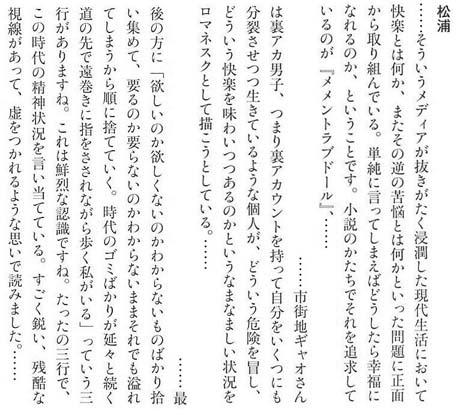 松浦
……そういうメディアが抜きがたく浸潤した現代生活において
快楽とは何か、またその逆の苦悩とは何かといった問題に正面
から取り組んでいる。単純に言ってしまえばどうしたら幸福に
なれるのか、ということです。小説のかたちでそれを追求して
いるのが『メメントラブドール』、……
……市街地ギャオさん
は裏アカ男子、つまり裏アカウントを持って自分をいくつにも
分裂させつつ生きているような個人が、どういう危険を冒し、
どういう快楽を味わいつつあるのかというなまなましい状況を
ロマネスクとして描こうとしている。……
……最
後の方に「欲しいのか欲しくないのかわからないものばかり拾
い集めて、要るのか要らないのかわからないままそれでも溢れ
てしまうから順に捨てていく。時代のゴミばかりが延々と続く
道の先で遠巻きに指をさされながら歩く私がいる」っていう三
行がありますね。これは鮮烈な認識ですね。たったの三行で、
この時代の精神状況を言い当てている。すごく鋭い、残酷な
視線があって、虚をつかれるような思いで読みました。……